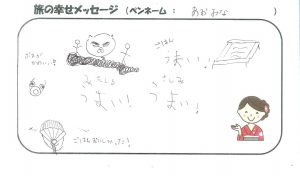 旅の幸せメッセージ（ペンネーム： あおみな ）
ごはん
うまい！
かわいい!!
さしみ
うまい！
うまい！
ごはんおいしかった！